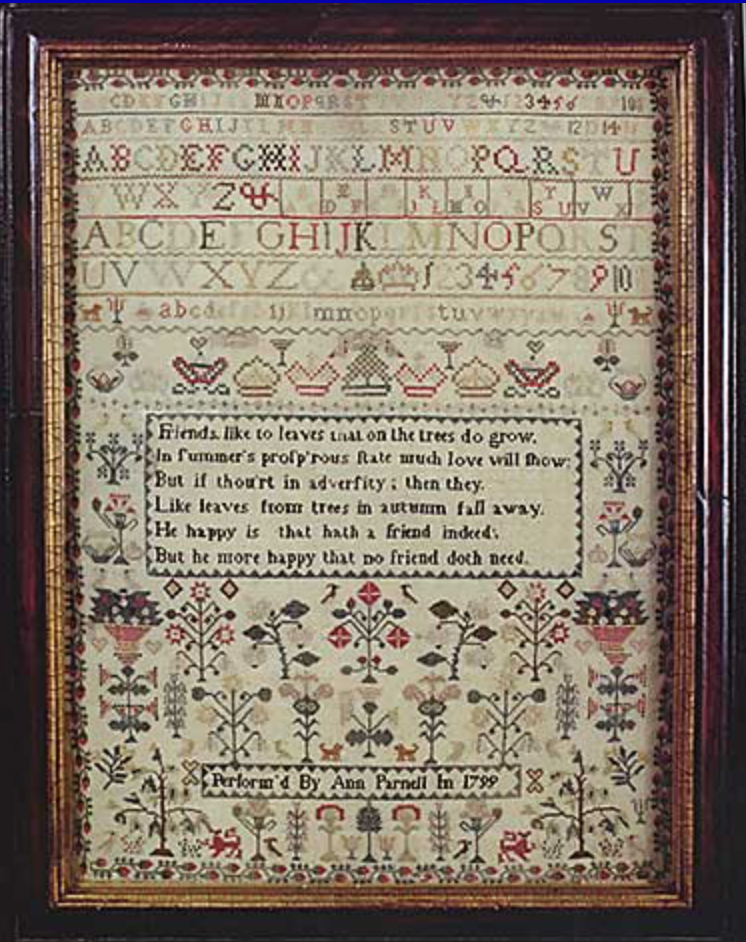 CDEFGH MNOPQRST YZ & 123456 10
ABCDEFGHIJ STUV WXYZ 12 14
ABCDEFGHIJKLMNOPQRSTU
WXYZ& E D F K J L M O Y S U V W X
ABCDEFGHIJKLMNOPQRST
UVWXYZ 12345678910
abcd ij lmnopqrstuvwxyz
Friends like to leaves that on the trees do grow,
In ſummer's proſp'rous ſtate much love will ſhow;
But if thou'rt in adverſity; then they.
Like leaves from trees in autumn fall away.
He happy is that hath a friend indeed;
But he more happy that no friend doth need.
Perform'd By Ann Parnell In 1799